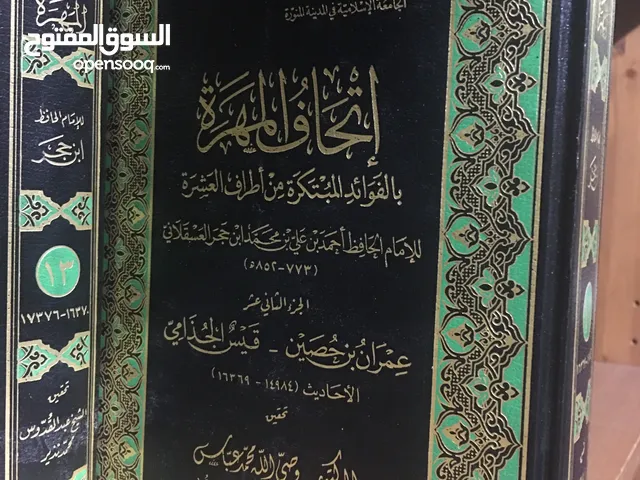 السوق المفتوح
opensooq.com
الجامعة الإسلامية في المدينة المنورة
إتحاف المهرة
بالفوائد المبتكرة من أطراف العشرة
للإمام الحافظ أحمد بن علي بن محمد ابن حجر العسقلاني
(٧٧٣-٨٥٢ه)
الجزء الثاني عشر
عمران بن حصين - قيس الجذامي
الأحاديث (١٤٩٨٤ - ١٦٣٦٩)
تحقيق
وصي الله محمد عباس
المهرة
للإمام الحافظ
ابن حجر
١٣
١٦٣٧٠-١٧٣٧٦
تحقيق
الشيخ عبد القدوس
محمد نذير